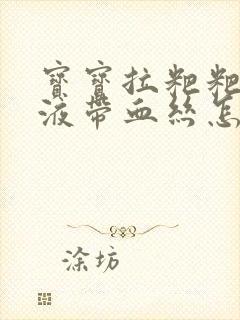 寶寶拉粑粑
液帶血絲怎
涂坊